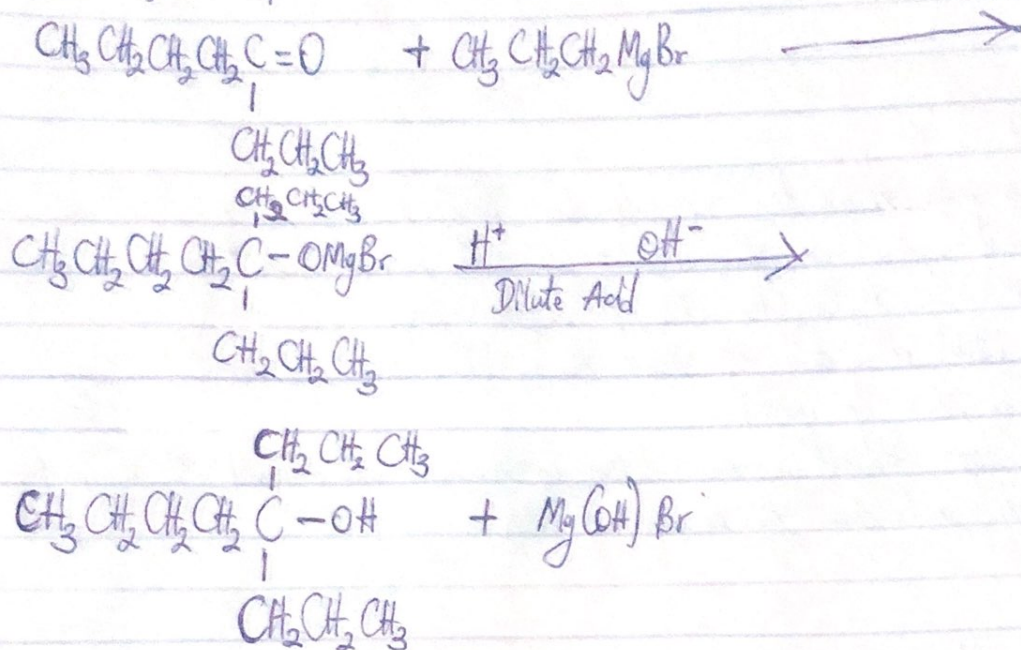 CH₃CH₂CH₂CH₂C=O + CH₃CH₂CH₂MgBr
CH₂CH₂CH₃
CH₂CH₂CH₃
CH₃CH₂CH₂CH₂C-OMgBr H⁺ OH⁻
Dilute Acid
CH₂CH₂CH₃
CH₂CH₂CH₃
CH₃CH₂CH₂CH₂C-OH + Mg(OH)Br
CH₂CH₂CH₃